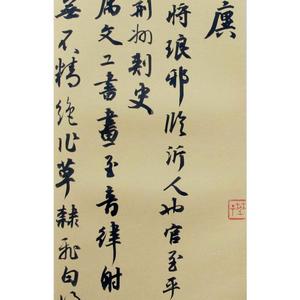 廙
將琅邪臨沂人也官至平
荊州刺史
屬文工書畫至音律射
無不精絕作草隸飛白